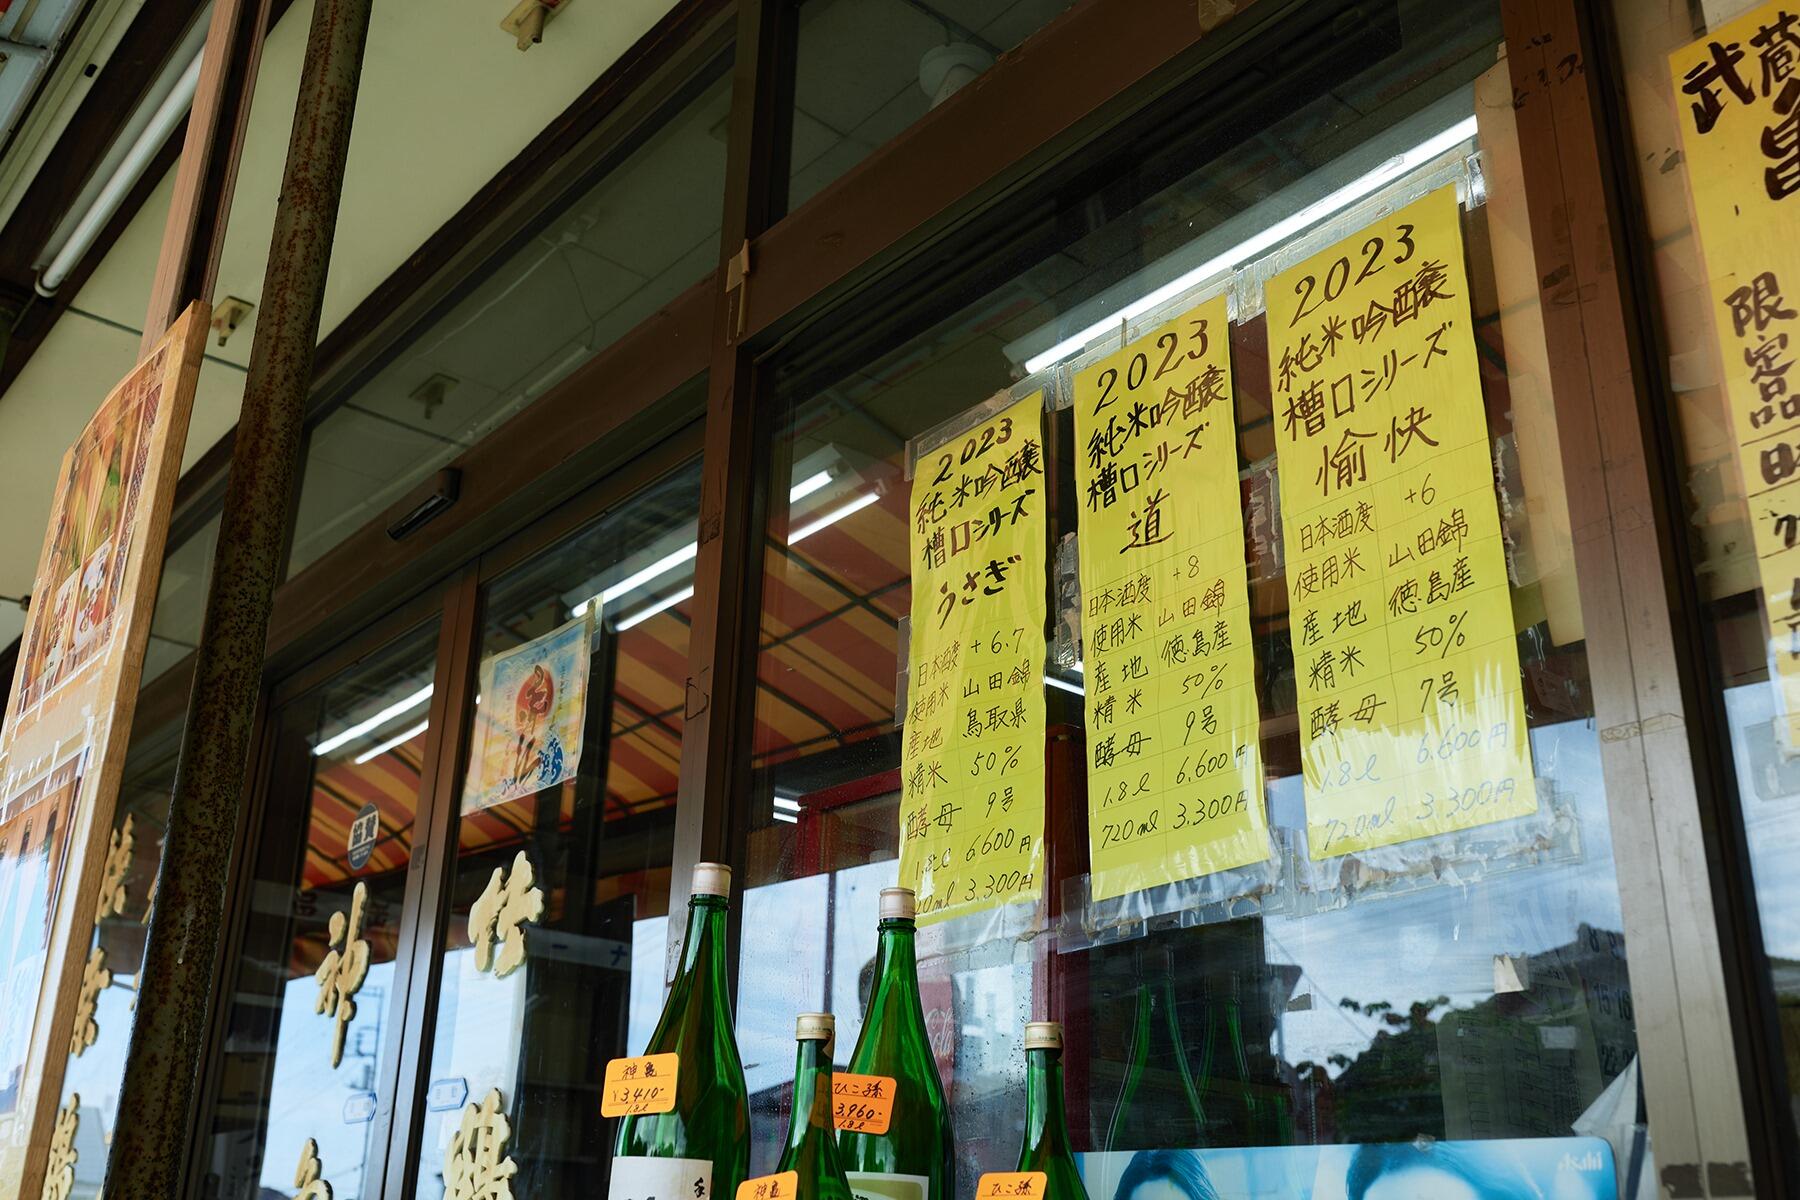 2023
純米吟醸
槽口シリーズ
うさぎ
日本酒度 +6.7
使用米 山田錦
産地 鳥取県
精米 50%
酵母 9号
1.8ℓ 6,600円
3,300円
2023
純米吟醸
槽口シリーズ
道
日本酒度 +8
使用米 山田錦
産地 徳島産
精米 50%
酵母 9号
1.8ℓ 6,600円
720mℓ 3,300円
2023
純米吟醸
槽口シリーズ
愉快
日本酒度 +6
使用米 山田錦
産地 徳島産
精米 50%
酵母 7号
1.8ℓ 6,600円
720mℓ 3,300円
武蔵
限定品
協賛
神
竹
鶴
神亀
¥3,410-
1.8ℓ
ひこ孫
3,960-
1.8ℓ
神亀
ひこ孫
Asahi